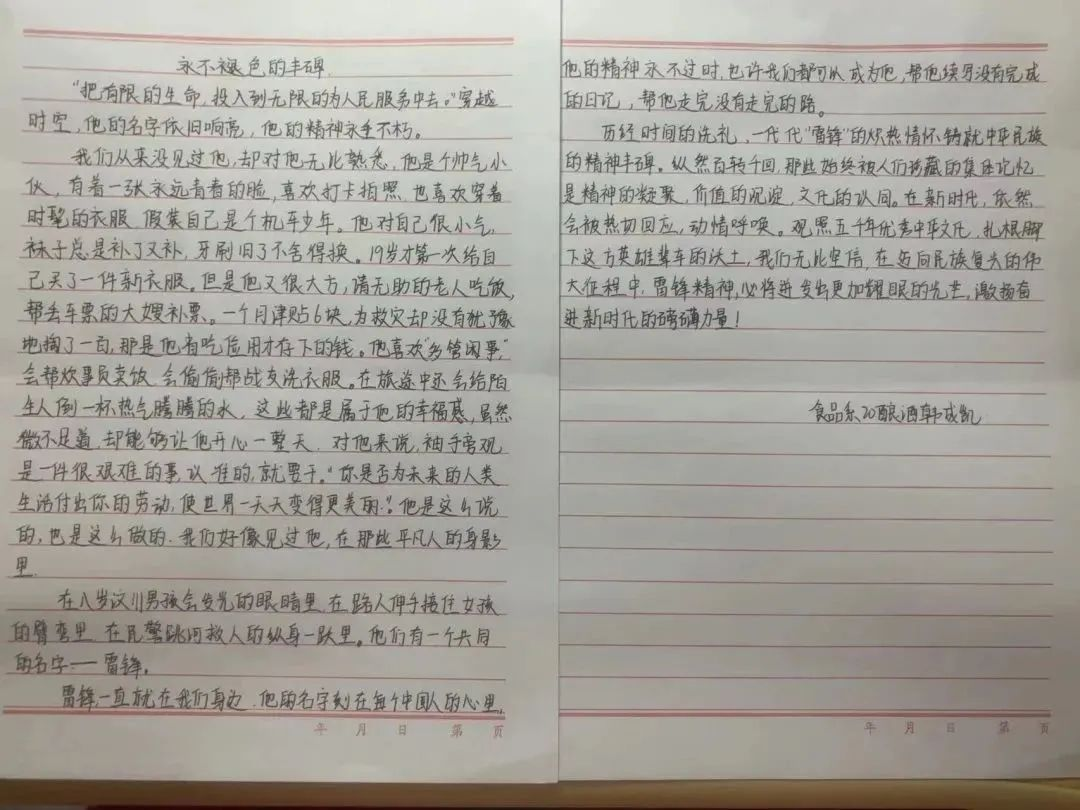 永不褪色的丰碑
"把有限的生命,投入到无限的为人民服务中去。"穿越
时空,他的名字依旧响亮,他的精神永垂不朽。
我们从来没见过他,却对他无比熟悉,他是个帅气小
伙,有着一张永远青春的脸,喜欢打卡拍照,也喜欢穿着
时髦的衣服,假装自己是个机车少年。他对自己很小气,
袜子总是补了又补,牙刷旧了不舍得换。19岁才第一次给自
己买了一件新衣服。但是他又很大方,请无助的老人吃饭,
帮丢车票的大嫂补票。一个月津贴6块,为救灾却没有犹豫
地掏了一百,那是他省吃俭用才存下的钱。他喜欢"多管闲事",
会帮炊事员卖饭,会偷偷帮战友洗衣服。在旅途中还会给陌
生人倒一杯热气腾腾的水,这些都是属于他的幸福感,虽然
微不足道,却能够让他开心一整天.对他来说,袖手旁观
是一件很艰难的事,认准的,就要干。"你是否为未来的人类
生活付出你的劳动,使世界一天天变得更美丽."他是这么说
的,也是这么做的.我们好像见过他,在那些平凡人的身影
里.
在八岁汶川男孩会发光的眼睛里,在路人伸手接住女孩
的臂弯里,在民警跳河救人的纵身一跃里。他们有一个共同
的名字——雷锋。
雷锋一直就在我们身边.他的名字刻在每个中国人的心里,
年 月 日 第 页
他的精神永不过时,也许我们都可以成为他,帮他续写没有完成
的日记,帮他走完没有走完的路。
历经时间的洗礼,一代代"雷锋"的炽热情怀铸就中华民族
的精神丰碑。纵然百转千回,那些始终被人们珍藏的集体记忆
是精神的凝聚,价值的沉淀,文化的认同。在新时代,依然
会被热切回应,动情呼唤。观照五千年优秀中华文化,扎根脚
下这方英雄辈出的沃土,我们无比坚信,在迈向民族复兴的伟
大征程中,雷锋精神,必将迸发出更加耀眼的光芒,激扬奋
进新时代的磅礴力量!
食品系20酿酒韩成凯
年 月 日 第 页